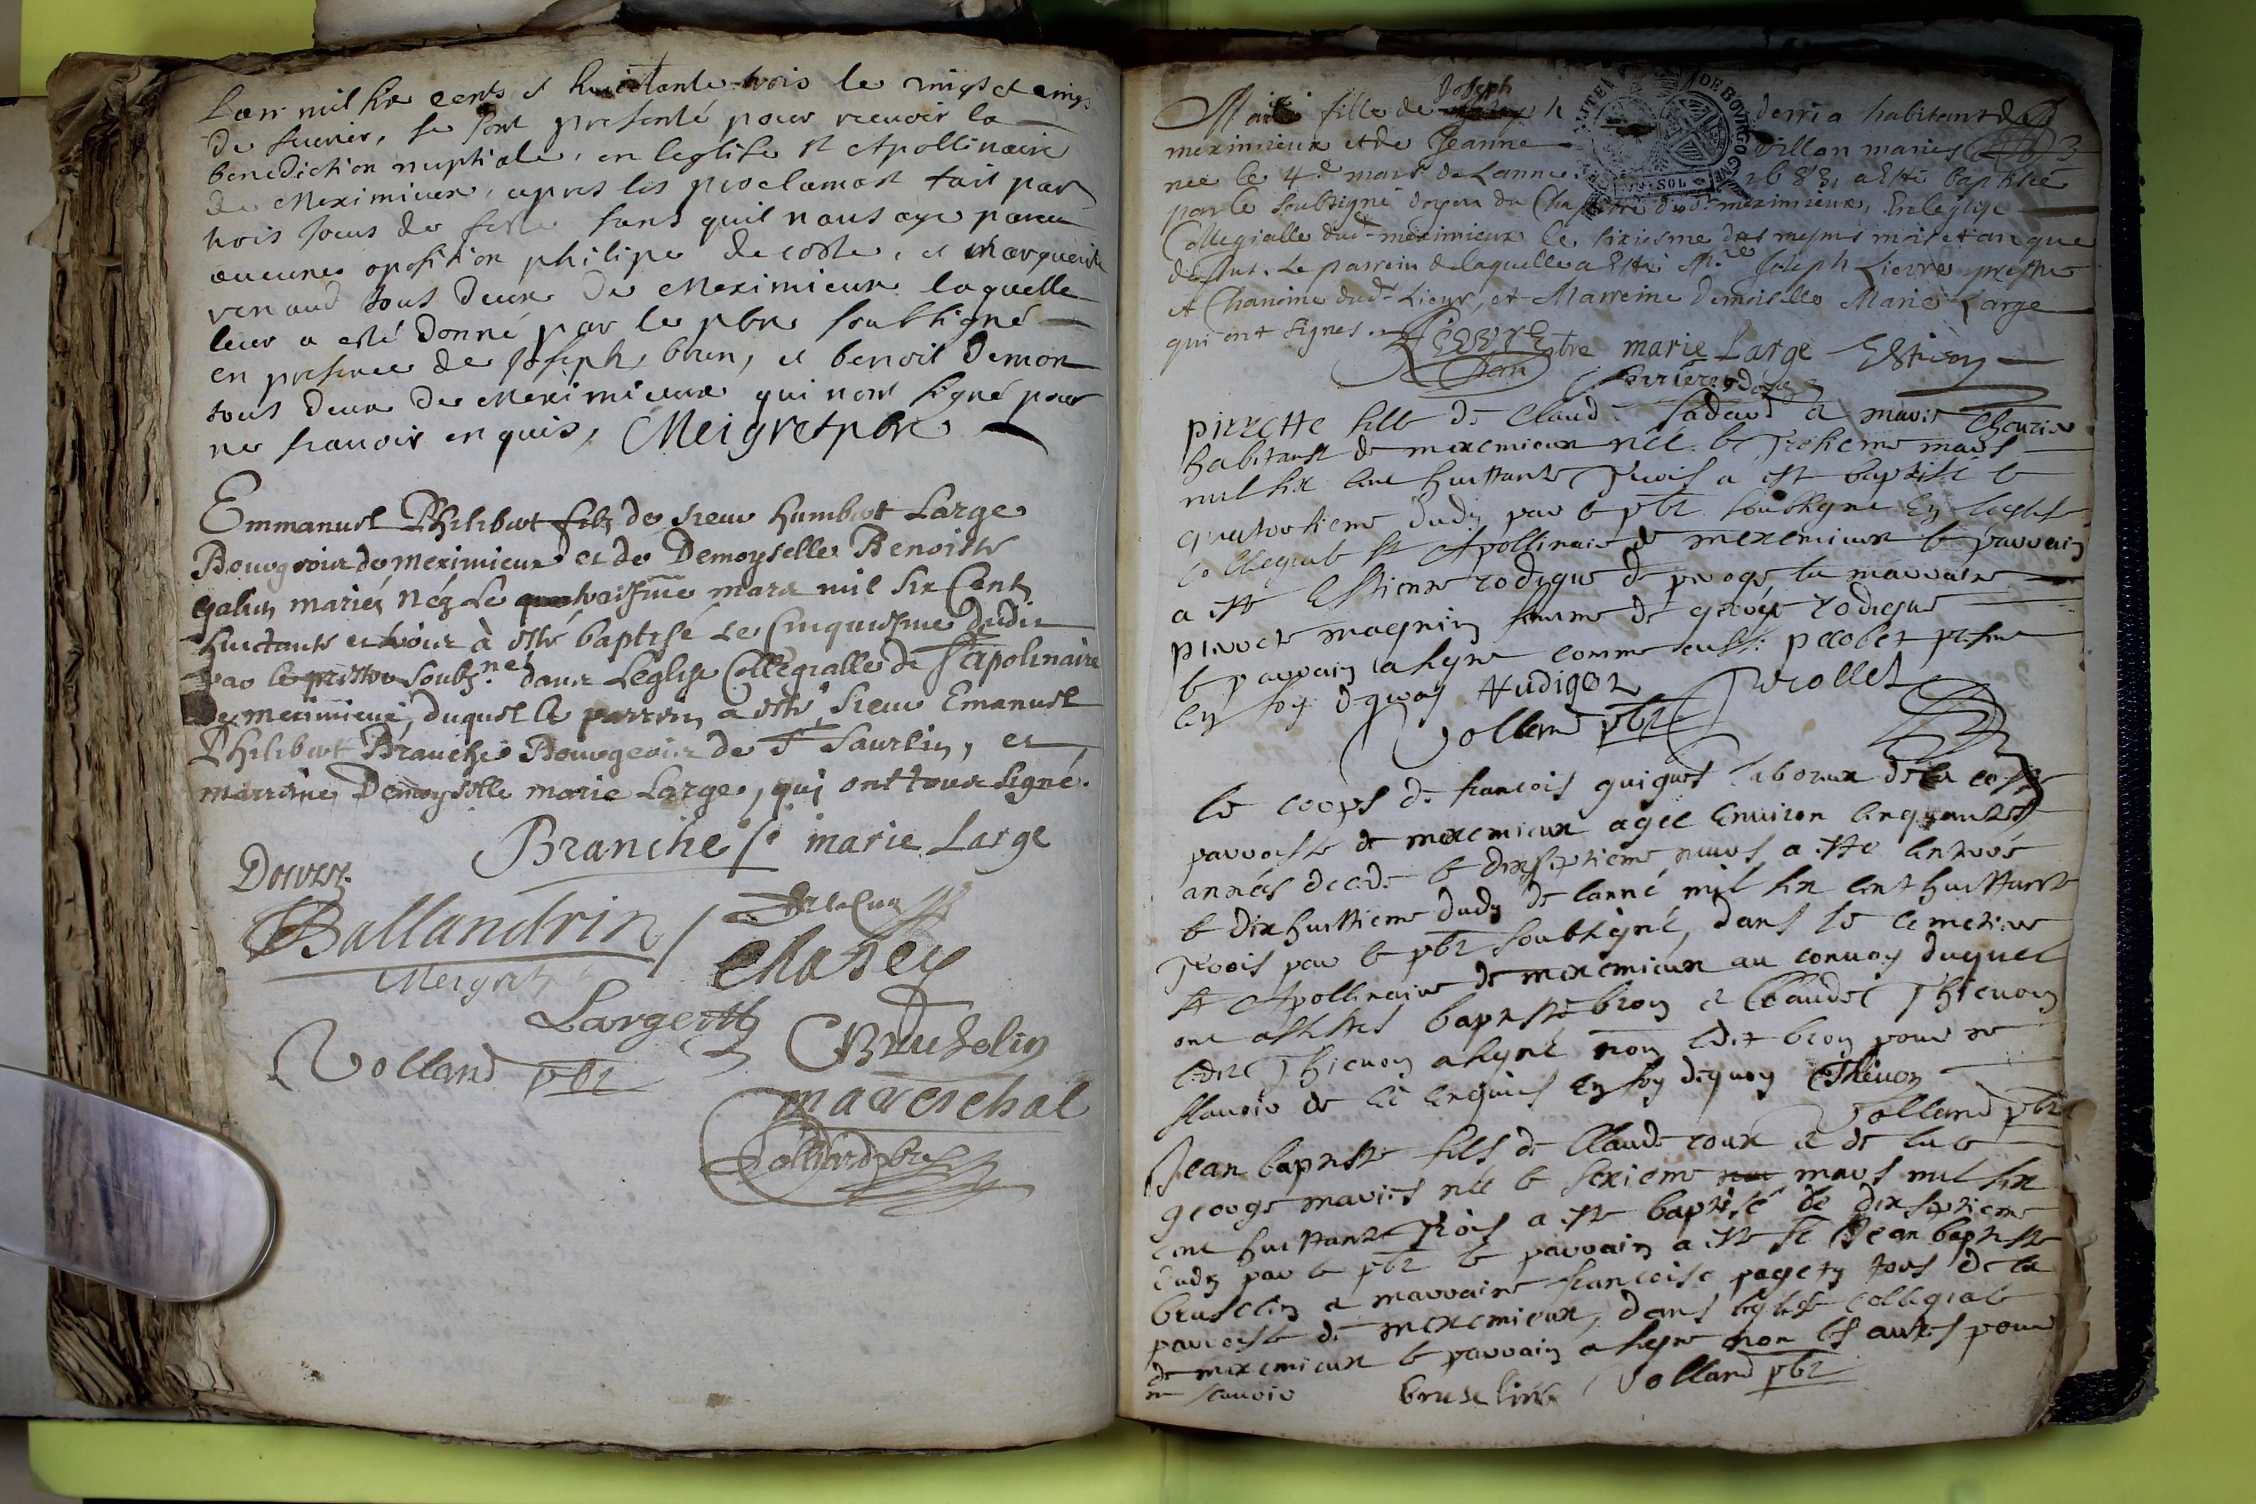 Lan mil six cents et huictante trois le vingt et cinq
de feurier, se sont presenté pour receuoir la
benediction nuptiale, en leglise st Apollinaire
de Meximieux, apres les proclamast fait par
trois jours de feste sans quil nous aye parue
aucune oposition philipe decoste, et Marguerite
renaud tous deux de Meximieux laquelle
leur a esté donné par le pbre soubsigné
en presence de Joseph brun, et benoit Demon
tous deux de Meximieux qui nont signé pour
ne scauoir enquis, Meigret pbre
Emmanuel Philibert fils de sieur humbert Large
Bourgeois de meximieux et de Demoyselle Benoiste
galien mariés né le troisiesme mars mil six Cents
huictante et trois à esté baptisé le Cinquiesme dudit
par le soubz.né dans Leglise Collegialle de St Apolinaire
de meximieux, duquel le parrein a esté, sieur Emanuel
Philibert Branche Bourgeois de St Saurlin, et
marrine Demoyselle marie Large, qui ont tous signé.
Branche marie Large
Ballandrin
Chasey
Meigret
Largentt
Bruselin
Volland pbr
mareschal
Marie fille de Joseph derria habitant de
meximieux et de Jeanne Dillon mariés
née le 4e mars de Lanne 1683, a esté baptisée
par le soubsigné doyen du Chapitre dud meximieux, En leglise
Collegialle dud meximieux le sixiesme des mesme mois et an que
dessus. Le parrein de laquelle a esté Mre Joseph Lievre prestre
et Chanoine dud. Lieux, et Marreine Demoiselle Marie Large
qui ont signes.
Lievre pbre marie Large
pierrette fille de Claude et marie
habitans de meximieux née le mars
mil six cent huittante Trois a esté baptisé le
quatorsieme dudy par le pbr soubsigné En leglise
collegiale st Apollinaire de meximieux le parrain
a esté Estienne rodigue de peroge la marraine
magnin femme de rodigue
le parrain a signé comme present
en foy dequoy
Volland pbr
le corps de francois guigues laboreur de la coste
parroisse de meximieux agée enuiron cinquante
années decede le dixseptieme mars a esté enterré
le dixhuittieme dudy de lanné mil six cent huittante
Trois par le pbr soubsigné, dans le cemetiere
st Apollinaire de meximieux au conuoy duquel
ont assistes baptiste bron et Claude Theuon
ledit Theuon a signé non ledit bron pour ne
scauoir de ce enquis en foy dequoy Theuon
Volland pbr
Jean baptiste fils de Claude roux et de luce
george mariés née le mars mil six
cent huittante Trois a esté baptisé le dixseptieme
dudy par le pbr le parrain a esté sr Jean baptiste
bruselin et marraine francoise pagety tous de la
parroisse de meximieux, dans leglise collegiale
de meximieux le parrain a signé non les autres pour
ne scauoir bruselin Volland pbr